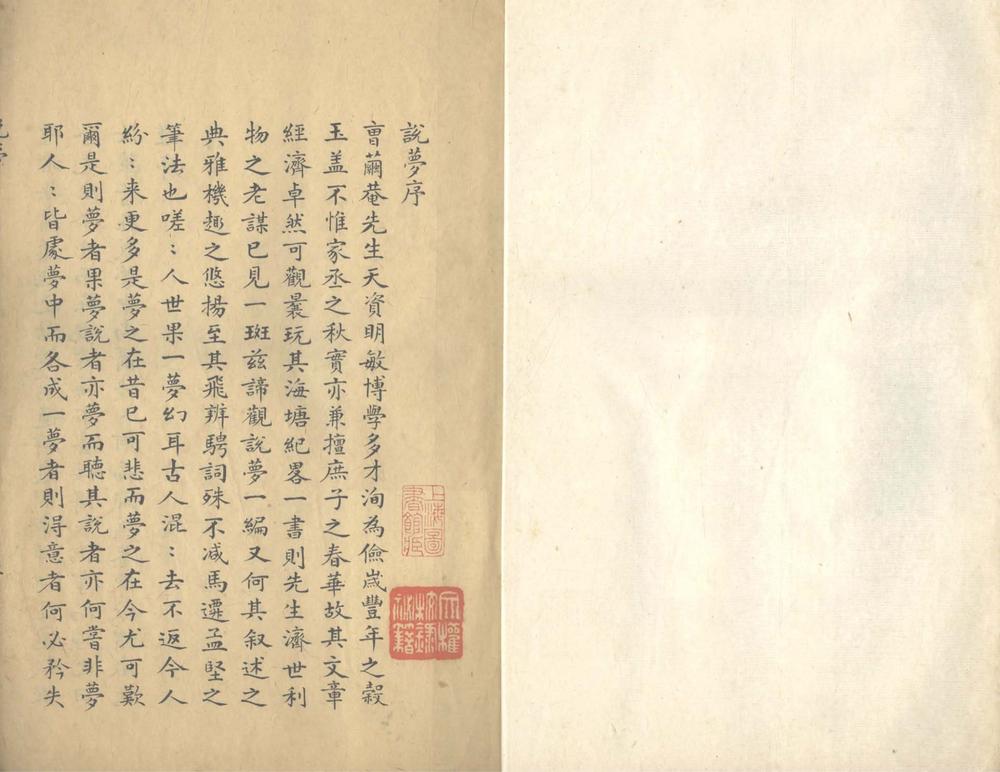 說夢序
曺繭菴先生天資明敏博學多才洵為儉歲豐年之穀
玉盖不惟家丞之秋實亦兼擅庶子之春華故其文章
經濟卓然可觀曩玩其海塘紀畧一書則先生濟世利
物之老謀已見一斑茲諦觀說夢一編又何其叙述之
典雅機趣之悠揚至其飛辨騁詞殊不减馬遷孟堅之
筆法也嗟：人世果一夢幻耳古人混：去不返今人
紛：来更多是夢之在昔已可悲而夢之在今尤可歎
爾是則夢者果夢說者亦夢而聽其說者亦何嘗非夢
耶人：皆處夢中而各成一夢者則淂意者何必矜失
上海圖
書館藏